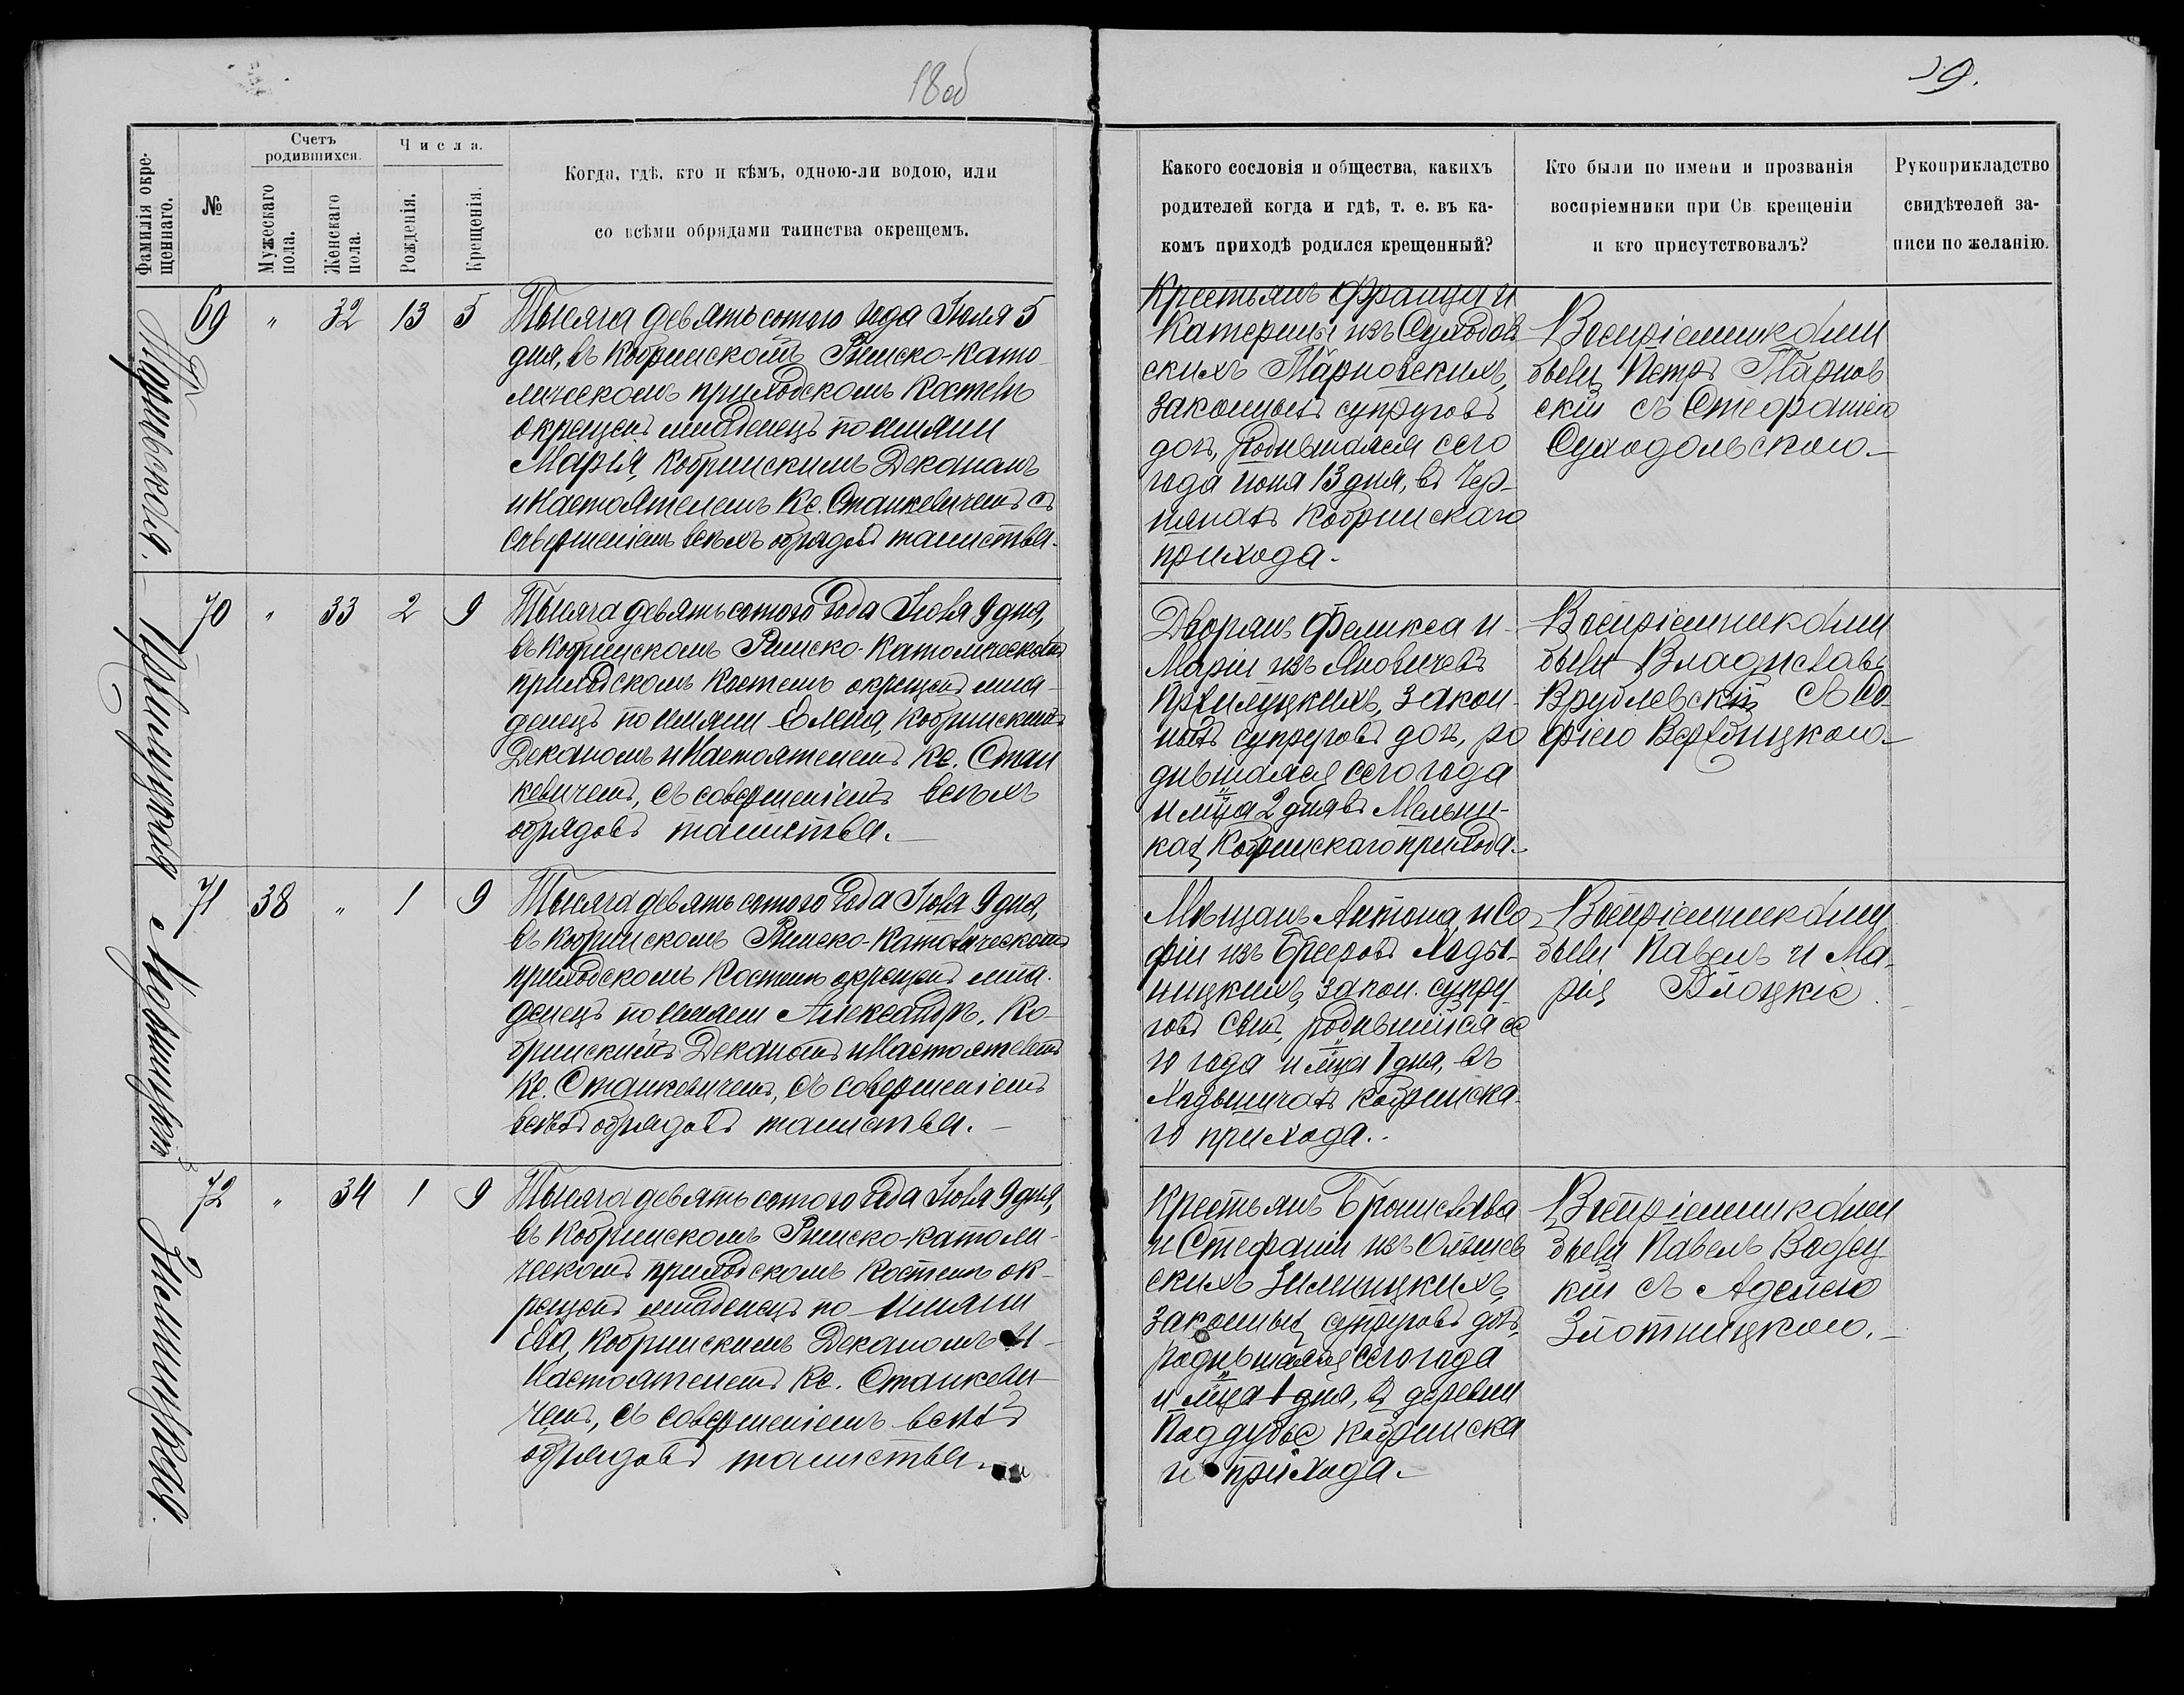 18об
19.
Фамилія окре-
щеннаго.
№
Счетъ
родившихся.
Мужескаго
пола.
Женскаго
пола.
Числа.
Рожденія.
Крещенія.
Когда, гдѣ, кто и кѣмъ, одною-ли водою, или
со всѣми обрядами таинства окрещемъ.
Какого сословія и общества, какихъ
родителей когда и гдѣ, т. е. въ ка-
комъ приходѣ родился крещенный?
Кто были по имени и прозванія
воспріемники при Св. крещеніи
и кто присутствовалъ?
Рукоприкладство
свидѣтелей за-
писи по желанію.
Тарновская.
69 " 32 13 5
Тысяча девятьсотого года Іюля 5
дня, въ Кобринскомъ Римско-Като-
лическомъ приходскомъ Костелѣ
окрещенъ младенецъ по имяни
Марія, Кобринскимъ Деканомъ
и Настоятелемъ Кс. Станкевичемъ съ
совершеніемъ всѣхъ обрядовъ таинства.
Крестьянъ Франца и
Катерины изъ Суходоль
скихъ Тарновскихъ,
законныхъ супруговъ
дочь, родившаяся сего
года іюня 13 дня, въ Чер-
нянахъ Кобринскаго
прихода.
Воспріемниками
были Петръ Тарнов
скій съ Стефаніею
Суходольскою.
Прилуцкая
70 " 33 2 9
Тысяча девятьсотого года Іюля 9 дня,
въ Кобринскомъ Римско-Католическомъ
приходскомъ Костелѣ окрещенъ мла-
денецъ по имяни Елена, Кобринскимъ
Деканомъ и Настоятелемъ Кс. Стан
кевичемъ, съ совершеніемъ всѣхъ
обрядовъ таинства.
Дворянъ Феликса и
Маріи изъ Яновичевъ
Прилуцкихъ, закон-
ныхъ супруговъ дочь, ро
дившаяся сего года
и мѣсяца 2 дня въ Мельни-
кахъ Кобринскаго прихода.
Воспріемниками
были Владиславъ
Врублевскій съ Со
фіею Вербицкою
71 38 " 1 9
Тысяча девятьсотого года Іюля 9 дня,
въ Кобринскомъ Римско-Католическомъ
приходскомъ Костелѣ окрещенъ мла-
денецъ по имяни Александръ, Ко-
бринскимъ Деканомъ и Настоятелемъ
Кс. Станкевичемъ, съ совершеніемъ
всѣхъ обрядовъ таинства.
Мѣщанъ Антона и Со
фіи изъ
ницкихъ закон. супру-
говъ сынъ, родившійся се
го года и мца 1 дня, въ
Кобринска-
го прихода.
Воспріемниками
были Павелъ и Ма-
рія
Зилиницкая.
72 " 34 1 9
Тысяча девятьсотого года Іюля 9 дня,
въ Кобринскомъ Римско-католи-
ческомъ приходскомъ Костелѣ ок-
рещенъ младенецъ по имяни
Ева, Кобринскимъ Деканомъ и
Настоятелемъ Кс. Станкеви-
чемъ, съ совершеніемъ всѣхъ
обрядовъ таинства.
Крестьянъ Бронислава
и Стефаніи изъ Ольшев
скихъ Зилиницкихъ,
законныхъ супруговъ дочь,
родившаяся сего года
и мца 1 дня, въ деревни
Поддубье Кобринска
го прихода.
Воспріемниками
были Павелъ
кій съ Аделею
Злотницкою.